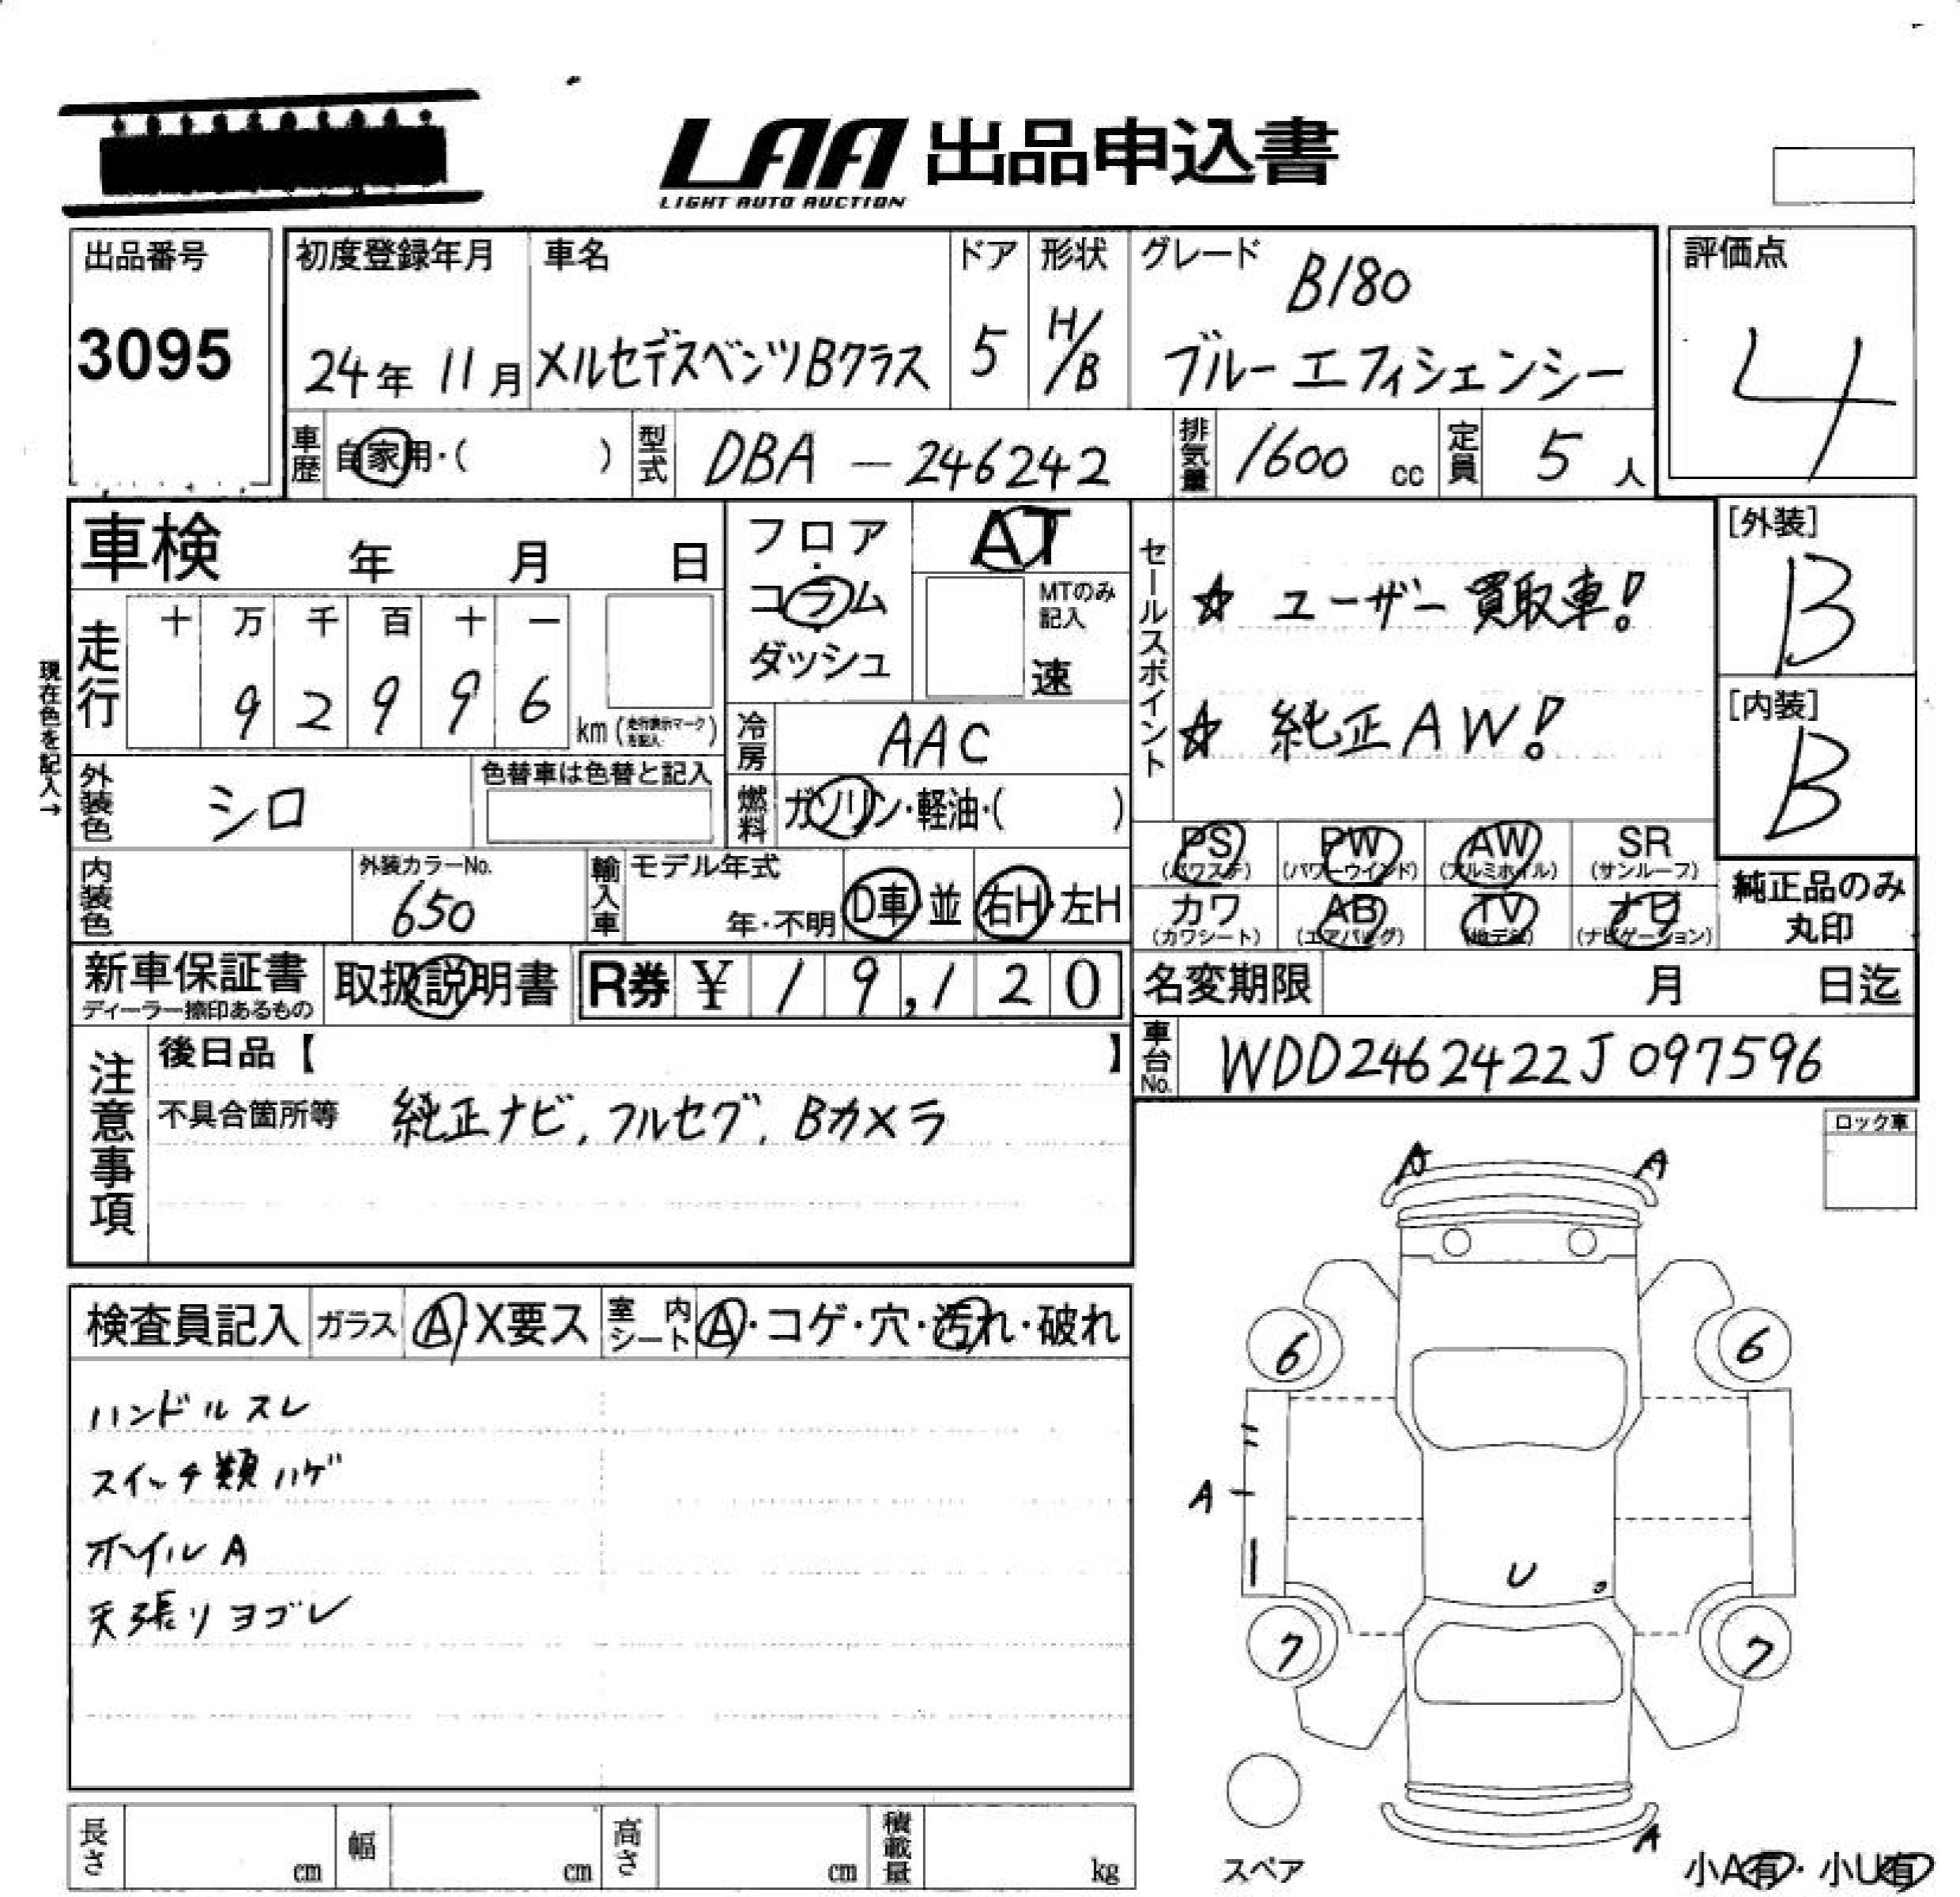 LAA 出品申込書
LIGHT AUTO AUCTION
出品番号
3095
初度登録年月
24年 11月
車名
メルセデスベンツBクラス
ドア
5
形状
H/B
グレード
B180
ブルーエフィシェンシー
評価点
4
車歴
自家用・( )
型式
DBA - 246242
排気量
1600 cc
定員
5 人
[外装]
B
[内装]
B
車検 年 月 日
走行
十 万 千 百 十 一
9 2 9 9 6
km (走行表示マークを記入)
現在色を記入→
フロア
・
コラム
・
ダッシュ
AT
MTのみ
記入
速
セールスポイント
☆ ユーザー買取車!
☆ 純正AW!
冷房
AAC
外装色
シロ
色替車は色替と記入
燃料
ガソリン・軽油・( )
内装色
外装カラーNo.
650
輸入車
モデル年式
年・不明
D車・並
右H・左H
PS
(パワステ)
PW
(パワーウインド)
AW
(アルミホイル)
SR
(サンルーフ)
カワ
(カワシート)
AB
(エアバッグ)
TV
(地デジ)
ナビ
(ナビゲーション)
純正品のみ
丸印
新車保証書
ディーラー捺印あるもの
取扱説明書
R券 ¥ 19,120
名変期限 月 日迄
車台No.
WDD2462422J097596
注意事項
後日品【 】
不具合箇所等 純正ナビ, フルセグ, Bカメラ
ロック車
検査員記入
ガラス
A・X要ス
室内シート
A・コゲ・穴・汚れ・破れ
ハンドルスレ
スイッチ類ハゲ
ホイルA
天張リヨゴレ
A A
6 6
A
U
7 7
A
スペア
小A有・小U有
長さ cm
幅 cm
高さ cm
積載量 kg